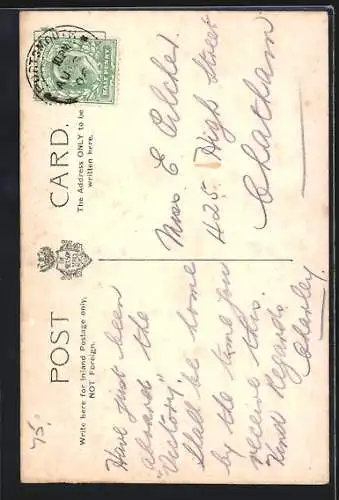 POST CARD.
Write here for Inland Postage only,
NOT Foreign.
The Address ONLY to be
written here.
HALF PENNY
PORTSMOUTH
AU
Have just been
aboard the
"Victory".
Shall be home
by the time you
receive this.
Kind Regards
Miss E Pilcher.
425 High Street
Chatham
75.